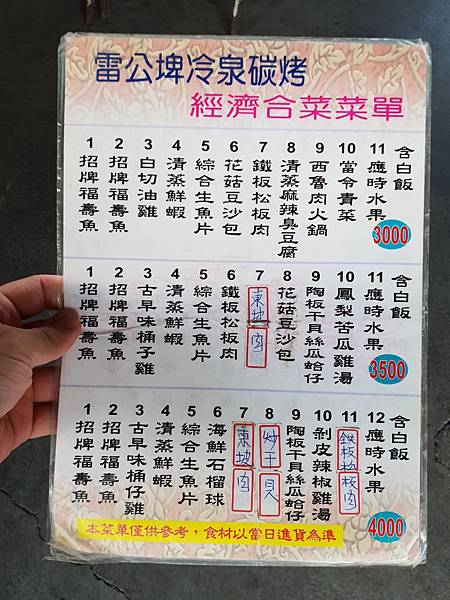 雷公埤冷泉碳烤
經濟合菜菜單
1 招牌福壽魚
2 招牌福壽魚
3 白切油雞
4 清蒸鮮蝦
5 綜合生魚片
6 花菇豆沙包
7 鐵板松板肉
8 清蒸麻辣臭豆腐
9 西魯肉火鍋
10 當令青菜
11 應時水果
含白飯
3000
1 招牌福壽魚
2 招牌福壽魚
3 古早味桶子雞
4 清蒸鮮蝦
5 綜合生魚片
6 鐵板松板肉
7 東坡肉
8 花菇豆沙包
9 陶板干貝絲瓜蛤仔
10 鳳梨苦瓜雞湯
11 應時水果
含白飯
3500
1 招牌福壽魚
2 招牌福壽魚
3 古早味桶仔雞
4 清蒸鮮蝦
5 綜合生魚片
6 海鮮石榴球
7 東坡肉
8 炒干貝
9 陶板干貝絲瓜蛤仔
10 剝皮辣椒雞湯
11 鉄板松板肉
12 應時水果
含白飯
4000
本菜單僅供參考，食材以當日進貨為準